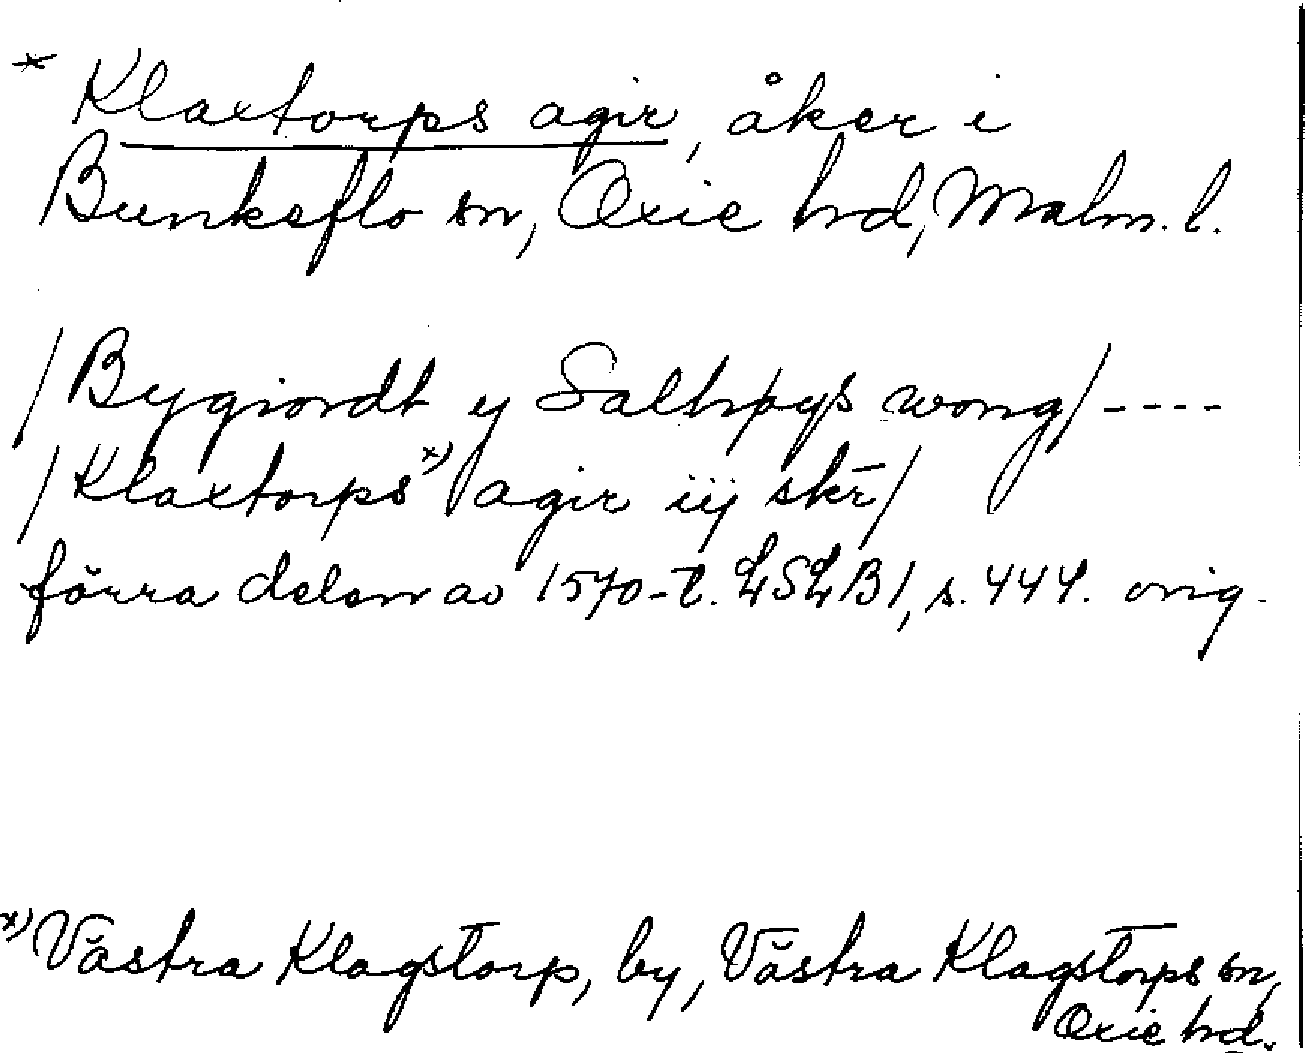 * Klaxtorps agir, åker i
Bunkeflo sn, Oxie hd, Malm. l.
/Bygiordt y Salhpyß wong/ ----
/Klaxtorps x) agir iij skr̄/
förra delen av 1570-t. LSLB1, s. 444. orig.
x) Västra Klagstorp, by, Västra Klagstorps sn,
Oxie hd.